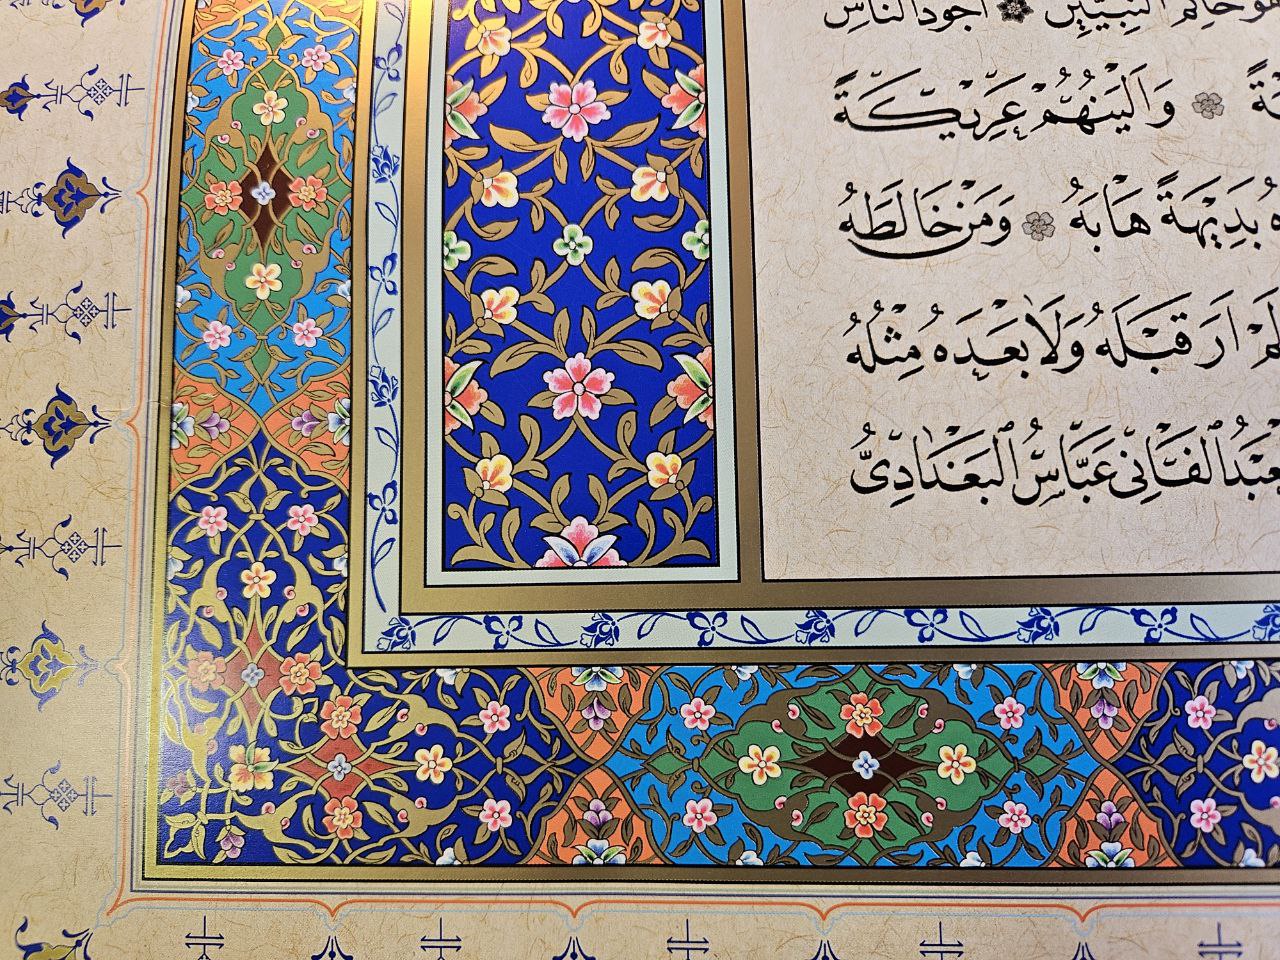 هُوَ خَاتِمُ النَّبِيِّينَ ۞ أَجْوَدُ النَّاسِ
وَأَلْيَنُهُمْ عَرِيكَةً
بَدِيهَةً هَابَهُ ۞ وَمَنْ خَالَطَهُ
لَمْ أَرَ قَبْلَهُ وَلَا بَعْدَهُ مِثْلَهُ
الْعَبْدُ الْفَانِي عَبَّاسُ الْبَغْدَادِيُّ